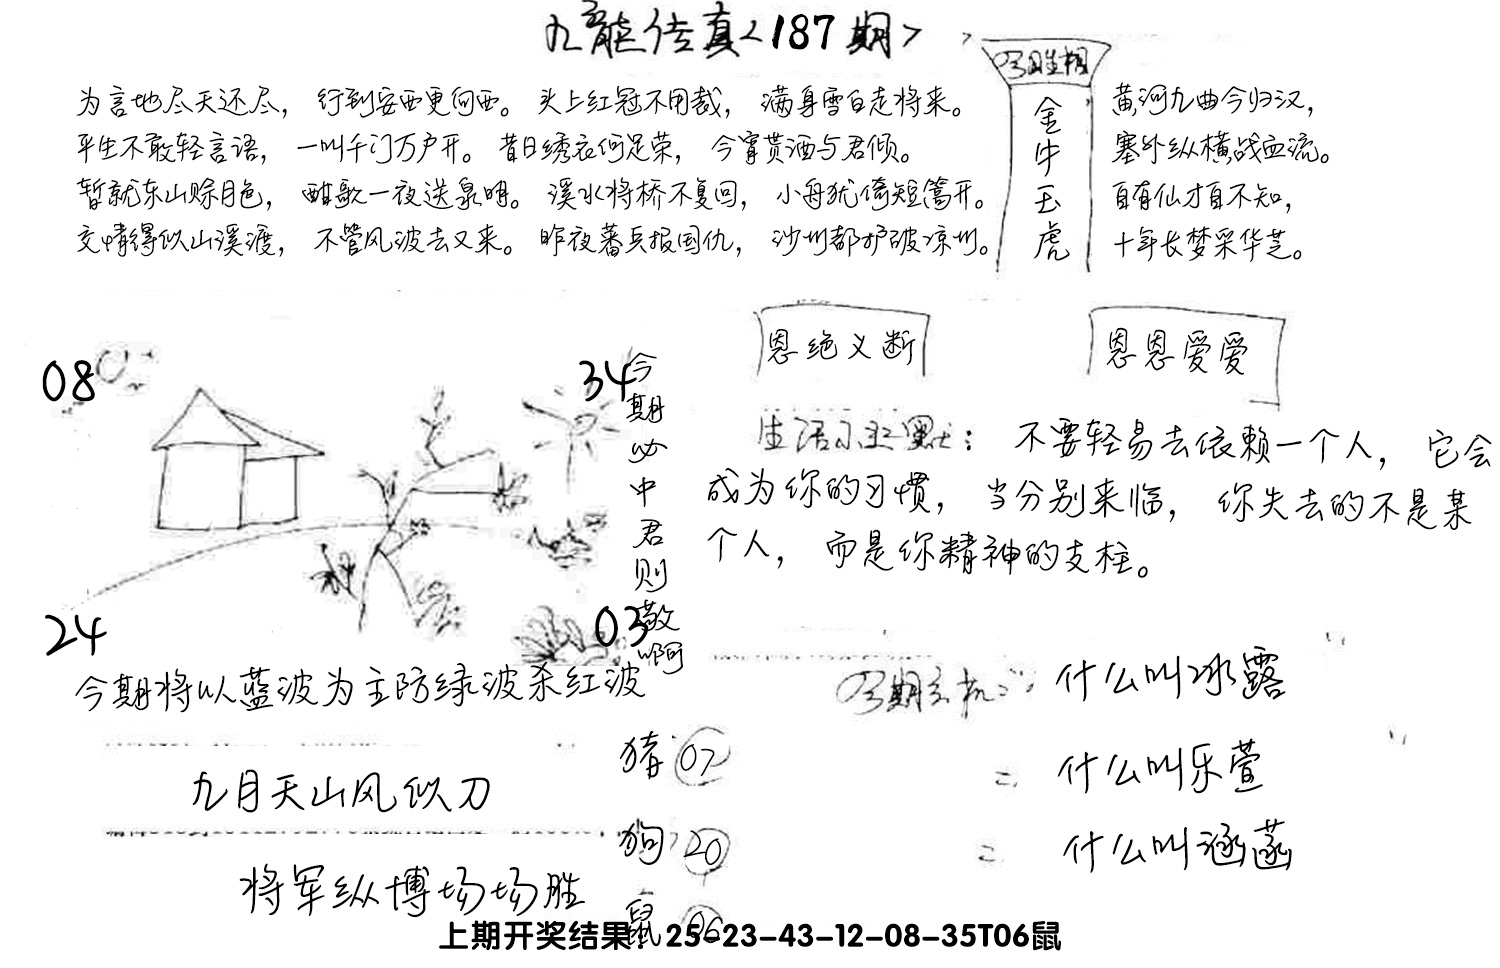 九龍传真<187期>
今期生相
金牛玉虎
为言地尽天还尽，行到安西更向西。头上红冠不用裁，满身雪白走将来。
平生不敢轻言语，一叫千门万户开。昔日绣衣何足荣，今宵贳酒与君倾。
暂就东山赊月色，酣歌一夜送泉明。溪水将桥不复回，小舟犹倚短篙开。
交情得似山溪渡，不管风波去又来。昨夜蕃兵报国仇，沙州都护破凉州。
黄河九曲今归汉，
塞外纵横战血流。
自有仙才自不知，
十年长梦采华芝。
08
34
24
03
今期必中君则敬啊
恩绝义断
恩恩爱爱
生活小幽默：不要轻易去依赖一个人，它会
成为你的习惯，当分别来临，你失去的不是某
个人，而是你精神的支柱。
今期将以蓝波为主防绿波杀红波
九月天山风似刀
将军纵博场场胜
猪 07
狗 20
鼠 06
今期玄机：什么叫冰露
二 什么叫乐萱
二 什么叫涵菡
上期开奖结果：25-23-43-12-08-35T06鼠